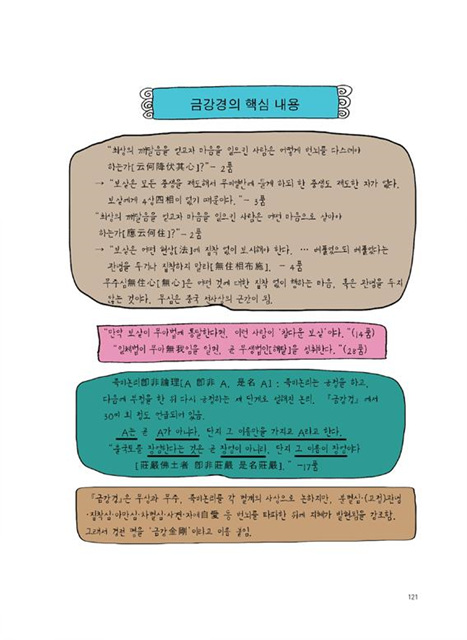 금강경의 핵심 내용
"최상의 깨달음을 얻고자 마음을 일으킨 사람은 어떻게 번뇌를 다스려야
하는가[云何降伏其心]?"- 2품
→ "보살은 모든 중생을 제도해서 무여열반에 들게 하되 한 중생도 제도한 자가 없다.
보살에게 4상四相이 없기 때문이다." - 3품
"최상의 깨달음을 얻고자 마음을 일으킨 사람은 어떤 마음으로 살아야
하는가[應云何住]?"- 2품
→ "보살은 어떤 현상[法]에 집착 없이 보시해야 한다. … 베풀었으되 베풀었다는
관념을 두거나 집착하지 말라[無住相布施]. - 4품
무주심無住心[無心]은 어떤 것에 대한 집착 없이 행하는 마음, 혹은 관념을 두지
않는 것이다. 무심은 중국 선사상의 근간이 됨.
"만약 보살이 무아법에 통달한다면, 이런 사람이 '참다운 보살'이다."(17품)
"일체법이 무아無我임을 알면, 곧 무생법인[해탈]을 성취한다."(28품)
즉비논리卽非論理[A 卽非 A, 是名 A] : 즉비논리는 긍정을 하고,
다음에 부정을 한 뒤 다시 긍정하는 세 단계로 설해진 논리. 『금강경』에서
30여 회 정도 언급되어 있음.
A는 곧 A가 아니다. 단지 그 이름만을 가지고 A라고 한다.
"불국토를 장엄한다는 것은 곧 장엄이 아니다. 단지 그 이름이 장엄이다
[莊嚴佛土者 卽非莊嚴 是名莊嚴]." -17품
『금강경』은 무상과 무주, 즉비논리를 각 경계의 사상으로 논하지만, 분별심·(고정)관념
·집착심·아만심·차별심·사견·자애自愛 등 번뇌를 타파한 뒤에 지혜가 발현됨을 강조함.
그래서 경전 명을 '금강金剛'이라고 이름 붙임.
121